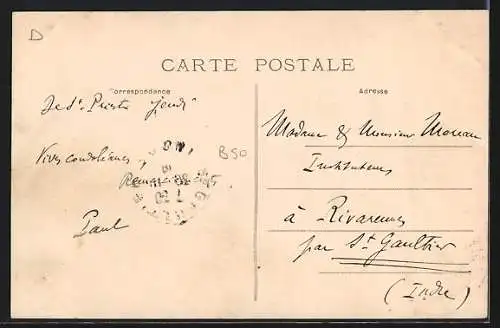 D
CARTE POSTALE
Correspondance
Adresse
De St Priest jeudi
Vives condoléances,
Remerciements,
Paul
B50
Madame & Monsieur Moreau
Instituteurs
à Rivarennes
par St Gaultier
(Indre)